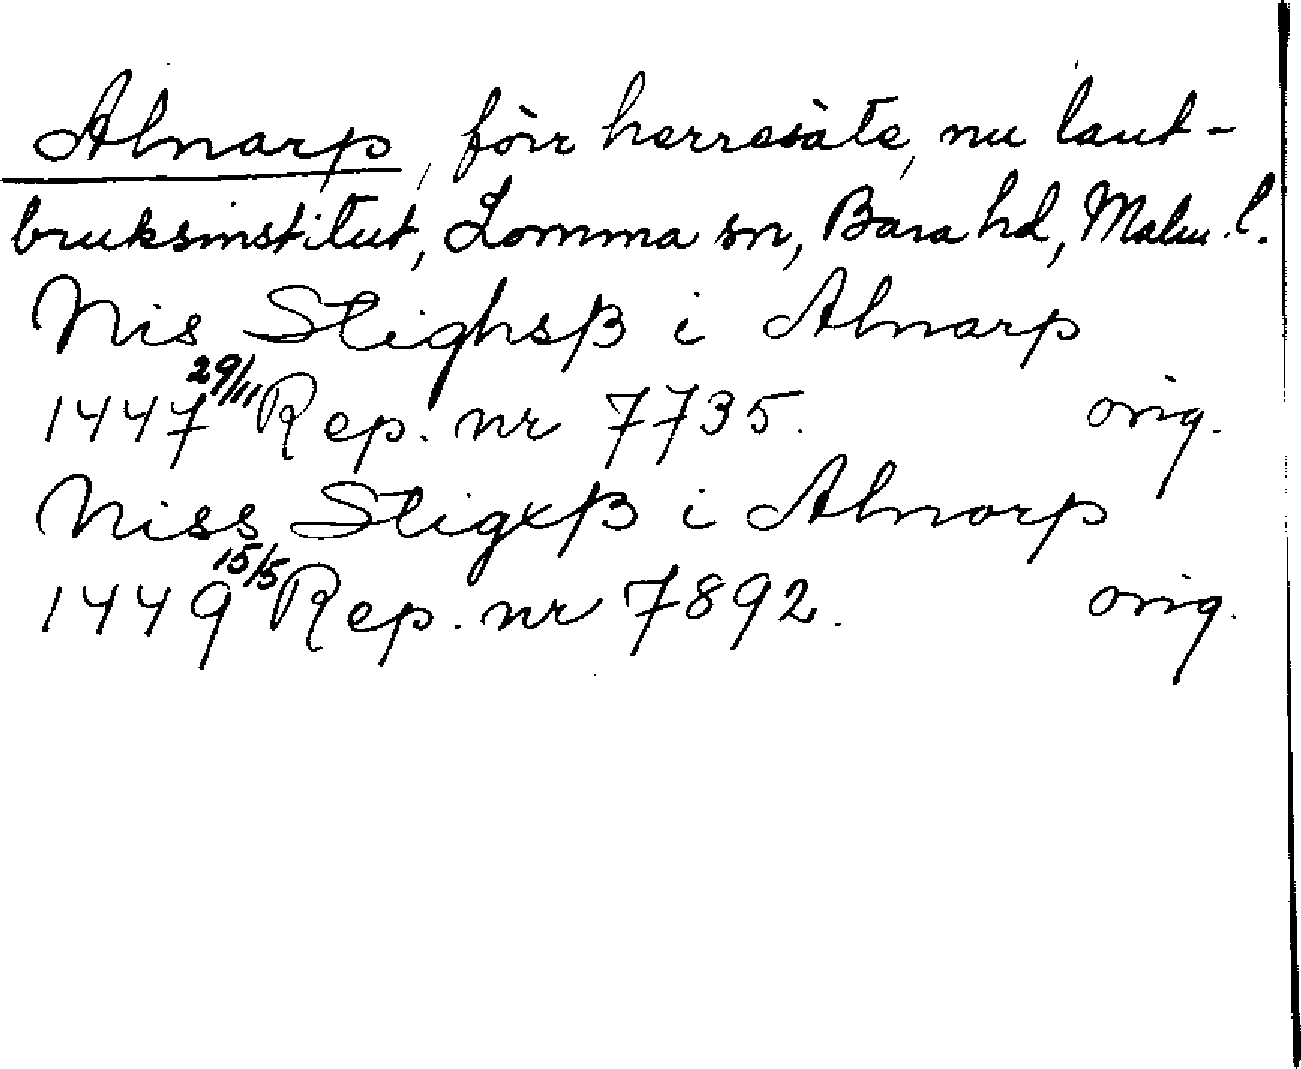 Alnarp, förr herresäte, nu lant-
bruksinstitut, Lomma sn, Bara hd, Malm. l.
Nis Stighsß i Alnarp
1447 29/11 Rep. nr 7735. orig.
Niss Stigxß i Alnorp
1449 15/5 Rep. nr 7892. orig.